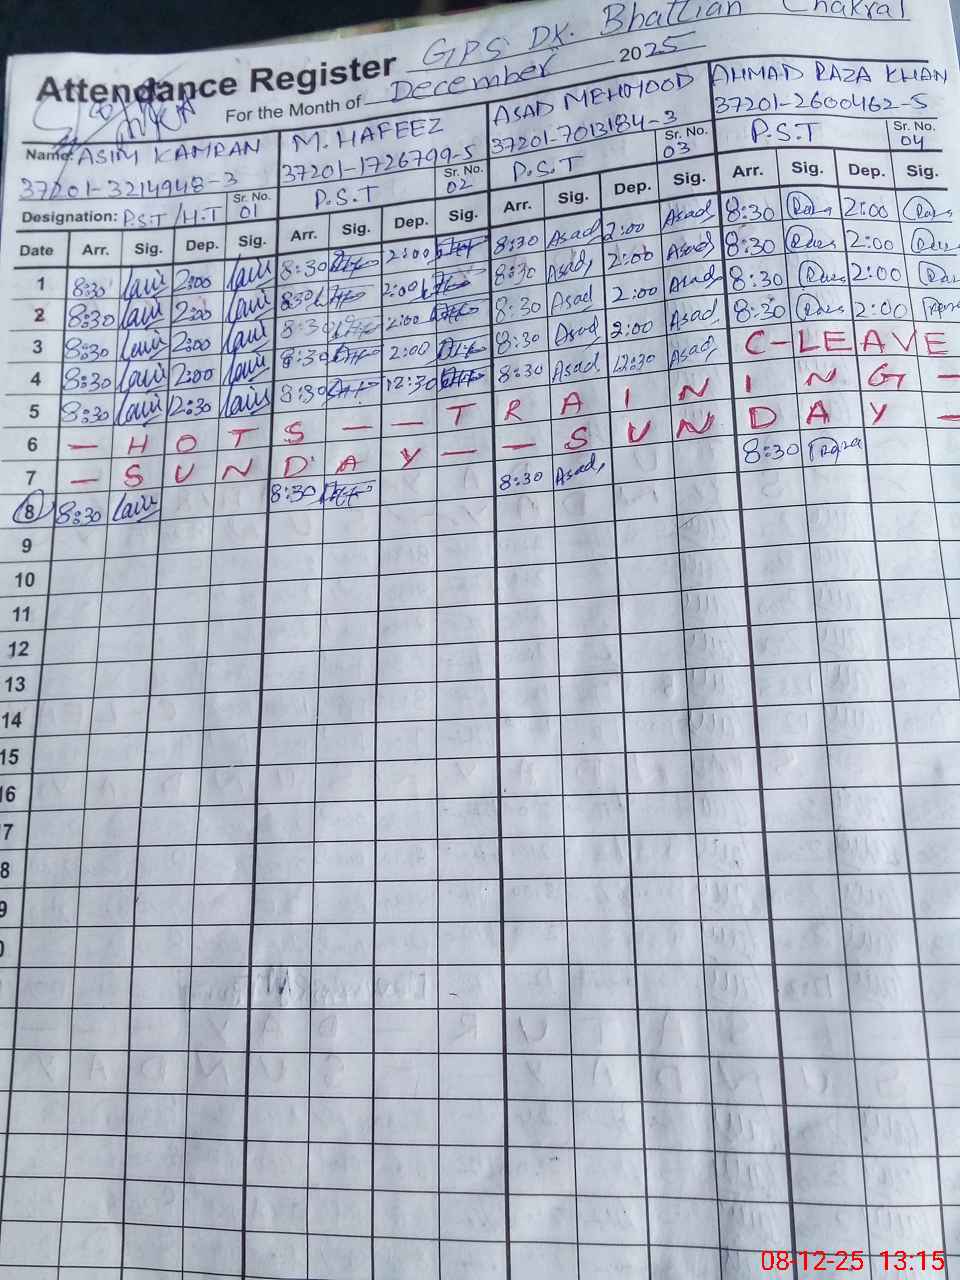 GPS DK. Bhattian Chakral
Attendance Register
For the Month of December 2025
Name: ASIM KAMRAN M. HAFEEZ ASAD MEHMOOD AHMAD RAZA KHAN
37201-3214948-3 37201-1726799-5 37201-7013184-3 37201-2600462-5
Designation: P.S.T/H.T Sr. No. 01 P.S.T Sr. No. 02 P.S.T Sr. No. 03 P.S.T Sr. No. 04
Date Arr. Sig. Dep. Sig. Arr. Sig. Dep. Sig. Arr. Sig. Dep. Sig. Arr. Sig. Dep. Sig.
1 8:30 2:00 8:30 2:00 8:30 Asad 2:00 Asad 8:30 Raza 2:00 Raza
2 8:30 2:00 8:30 2:00 8:30 Asad 2:00 Asad 8:30 Raza 2:00 Raza
3 8:30 2:00 8:30 2:00 8:30 Asad 2:00 Asad 8:30 Raza 2:00 Raza
4 8:30 2:00 8:30 2:00 8:30 Asad 2:00 Asad 8:30 Raza 2:00 Raza
5 8:30 12:30 8:30 12:30 8:30 Asad 12:30 Asad C-LEAVE
6 - HOTS - - TRAINING -
7 - SUNDAY - - SUNDAY -
8 8:30 8:30 8:30 Asad 8:30 Raza
9
10
11
12
13
14
15
16
7
8
9
0
08-12-25 13:15